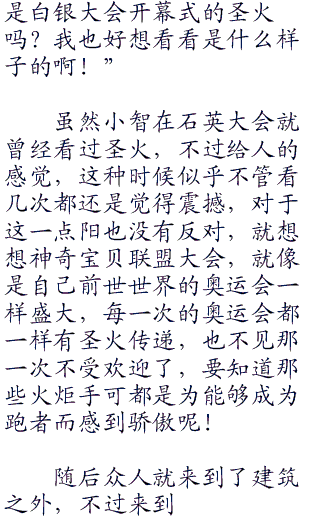 是白银大会开幕式的圣火
吗？我也好想看看是什么样
子的啊！”
虽然小智在石英大会就
曾经看过圣火，不过给人的
感觉，这种时候似乎不管看
几次都还是觉得震撼，对于
这一点阳也没有反对，就想
想神奇宝贝联盟大会，就像
是自己前世世界的奥运会一
样盛大，每一次的奥运会都
一样有圣火传递，也不见那
一次不受欢迎了，要知道那
些火炬手可都是为能够成为
跑者而感到骄傲呢！
随后众人就来到了建筑
之外，不过来到